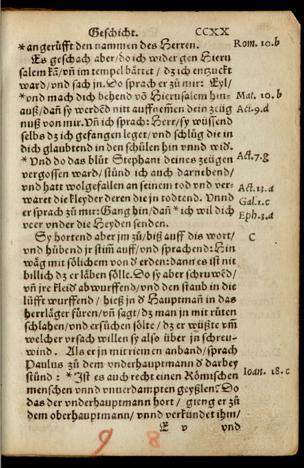 Geschicht. CCXX
*angerüfft den nammen des Herren. Rom. 10.b
Es geschach aber/do ich wider gen Hieru
salem kā/vñ im tempel bättet/ dz ich entzuckt
ward/vnd sach jn. Do sprach er zů mir: Eyl/
*vnd mach dich behend vō Hierusalem hin- Mat. 10.b
auß/dañ sy werdēd nit auffnemen dein zeüg Act.9.d
nuß von mir. Vñ ich sprach: Herr/sy wüssend
selbs dz ich gefangen leget/vnd schlůg die in
dich glaubtend in den schůlen hin vnnd wid.
*Vnd do das blůt Stephani deines zeügen Act.7.g
vergossen ward/stůnd ich auch darnebend/
vnd hatt wolgefallen an seinem tod vnd ver-
waret die kleyder deren die jn todtend. Vnnd Act.13.d
er sprach zů mir: Gang hin/dañ * ich wil dich Gal.1.c
veer vnder die Heyden senden. Eph.3.a
Sy hortend aber jm zů/biß auff dis wort/ C
vnd hůbend jr stiñ auff/vnd sprachend: Hin
wäg mit sölichem von d erden: dann es ist nit
billich dz er läben sölle. Do sy aber schruwēd/
vñ jre kleid abwurffend/vnd den staub in die
lüfft wurffend/ hieß jn d Hauptman in das
herrläger füren/vñ sagt/dz man jn mit růten
schlahen/vnd ersůchen sölte/ dz er wüßte vm̄
welcher vrsach willen sy also über jn schreu-
wind. Als er jn mit riemen anband/sprach
Paulus zů dem vnderhauptmann d darbey
stůnd: *Ist es auch recht einen Römischen Ioan. 18.c
menschen vnnd vnuerdampten geyßlen? Do
das der vnderhauptmann hort/ gieng er zů
dem oberhauptmann/ vnnd verkündet jhm/
E v vnd
9 8